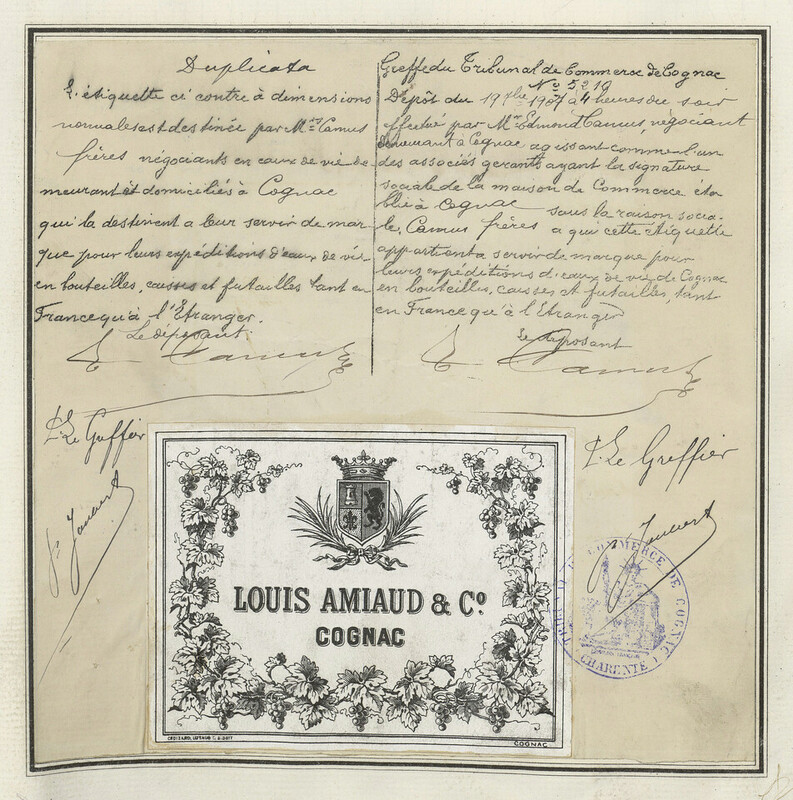 Duplicata
L'étiquette ci contre à dimensions
normales est destinée par Mrs Camus
frères négociants en eaux de vie de
meurant et domiciliés à Cognac
qui la destinent a leur servir de mar
que pour leurs expéditions d'eaux de vie
en bouteilles, caisses et futailles tant en
France qu'à l'Etranger.
Le déposant.
E. Camus
Pr Le Greffier
Greffe du Tribunal de Commerce de Cognac
No 5219
Dépôt du 19 1907 à 4 heures du soir
effectué par Mr Edmond Camus, négociant
demeurant à Cognac agissant comme l'un
des associés gerants ayant la signature
sociale de la maison de Commerce éta
blie à Cognac sous la raison socia
le, Camus frères a qui cette étiquette
appartient a servir de marque pour
leurs expéditions d'eaux de vie de Cognac
en bouteilles, caisses et futailles, tant
en France qu'à l'Etranger
Le déposant
E. Camus
Pr Le Greffier
LOUIS AMIAUD & Co
COGNAC
COGNAC
TRIBUNAL DE COMMERCE DE COGNAC
CHARENTE